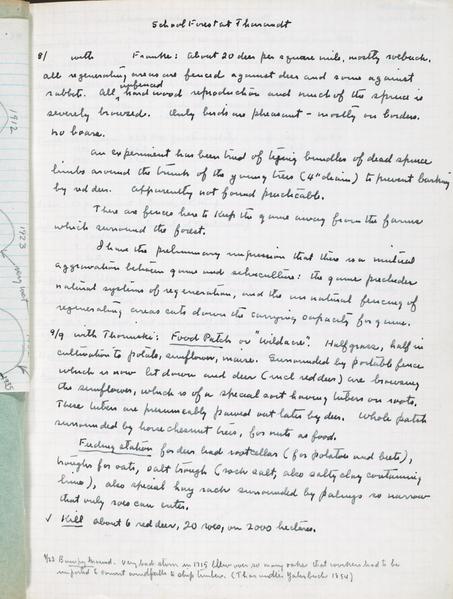 School Forest at Tharandt
8/ with Franke: About 20 deer per square mile, mostly roebuck.
All regenerating areas are fenced against deer and some against
rabbits. All unfenced hardwood reproduction and much of the spruce is
severely browsed. Only birds are pheasant - mostly on borders.
No boars.
An experiment has been tried of tying bundles of dead spruce
limbs around the trunks of the young trees (4" diam) to prevent barking
by red deer. Apparently not found practicable.
There are fences here to keep the game away from the farms
which surround the forest.
I have the preliminary impression that there is a mutual
aggravation between game and silviculture: the game precludes
natural systems of regeneration, and the unnatural fencing of
regenerating areas cuts down the carrying capacity for game.
9/9 with Thomaski: Food Patch or "Wildacre". Half grass, half in
cultivation to potato, sunflower, maize. Surrounded by portable fence
which is now let down and deer (incl red deer) are browsing
the sunflower, which is of a special sort having tubers on roots.
These tubers are presumably pawed out later by deer. Whole patch
surrounded by horse chestnut trees, for nuts as food.
Feeding station for deer had rootcellar (for potatoes and beets),
troughs for oats, salt trough (rock salt, also salty clay containing
lime), also special hay rack surrounded by palings so narrow
that only roes can enter.
✓ Kill about 6 red deer, 20 roes, on 2000 hectares.
9/22 Bumpy Ground. Very bad storm in 1715 blew over so many oaks that workers had to be
imported to convert windfalls to ship timber. (Tharandter Jahrbuch 1854)
1912
1923
very wet
1935